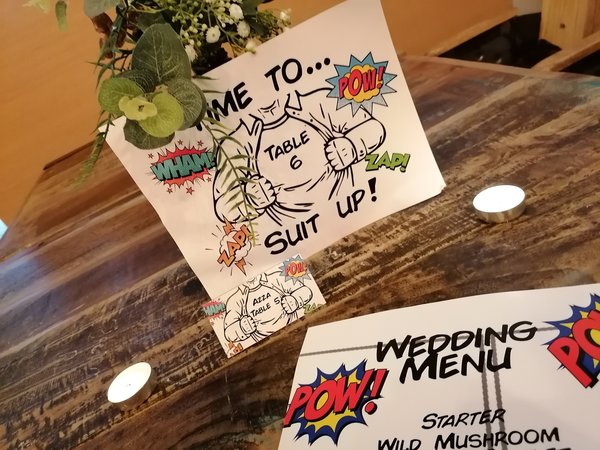 TIME TO...
POW!
WHAM!
TABLE
6
ZAP!
ZAP!
SUIT UP!
POW!
WHAM!
AZZA
TABLE 5
WEDDING
MENU
POW!
POW!
STARTER
WILD MUSHROOM